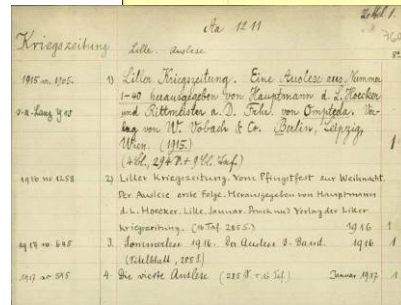 Aa 1211
Zettel 1.
Kriegszeitung
Lille. Auslese
8°
1915 nr. 1905.
1) Liller Kriegszeitung. Eine Auslese aus Nummer
1-40 herausgegeben von Hauptmann d. L. Hoecker
und Rittmeister a. D. Frhr. von Ompteda. Ver-
lag von W. Vobach & Co. Berlin, Leipzig,
Wien. (1915.)
1
1916 nr 1258
2) Liller Kriegszeitung. Vom Pfingstfest zur Weihnacht.
Der Auslese erste Folge. Herausgegeben von Hauptmann
d. L. Hoecker. Lille. Januar. Druck und Verlag der Liller
Kriegszeitung. (16 Taf. 285 S.) 1916 1
nr. 645
3. Sommerlese 1916. der Auslese 3. Band. 1916 1
(Titelblatt, 205 S.)
1917 nr 545
4. Die vierte Auslese (285 S. + 16 Taf.) Januar 1917. 1